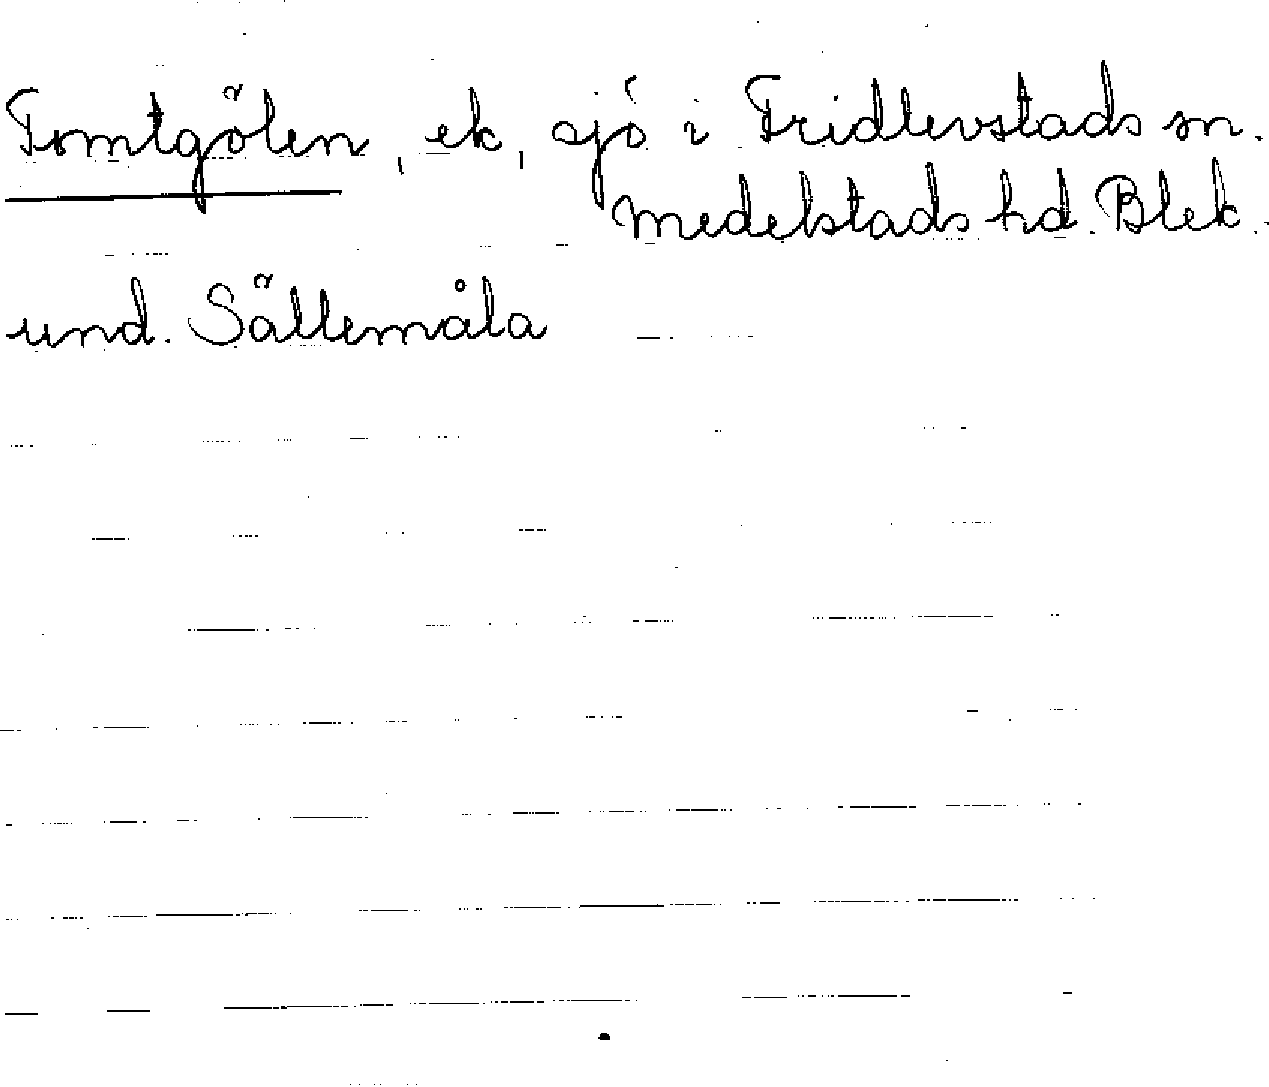 Tomtgölen, ek, sjö i Fridlevstads sn.
Medelstads hd. Blek.
und. Sällemåla